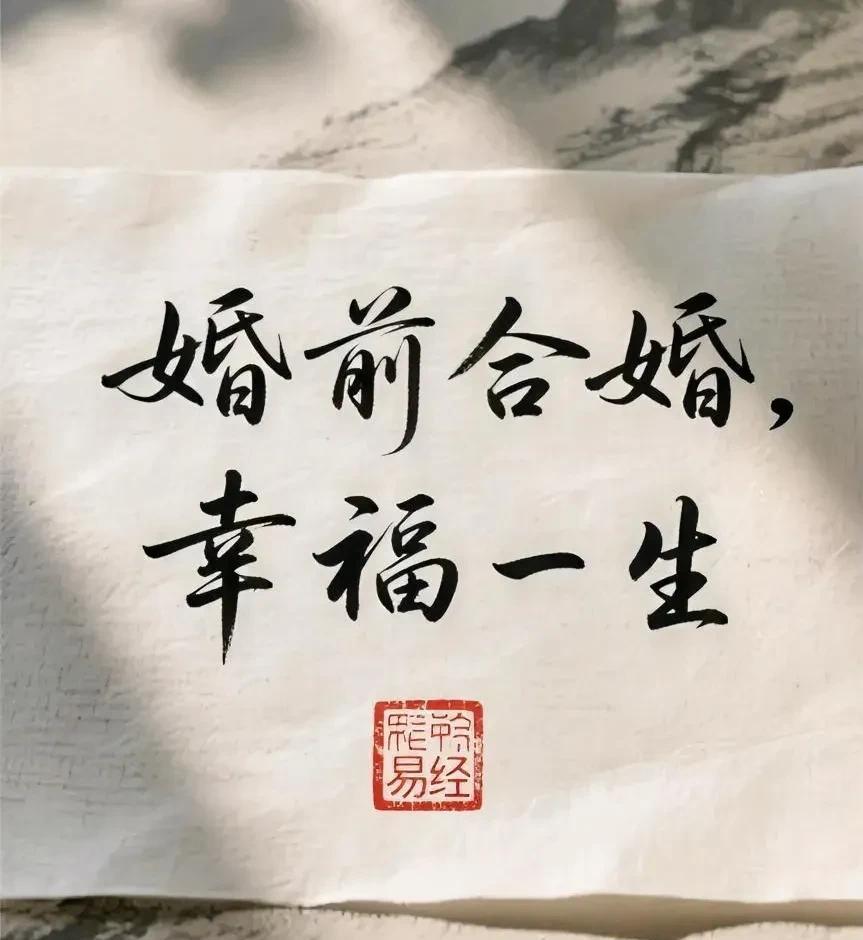 婚前合婚，
幸福一生
易经